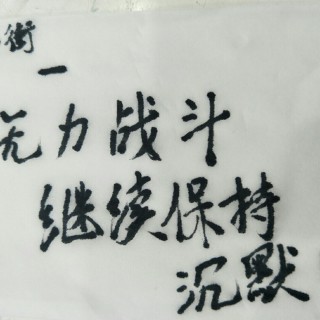 街
一
无力战斗
继续保持
沉默